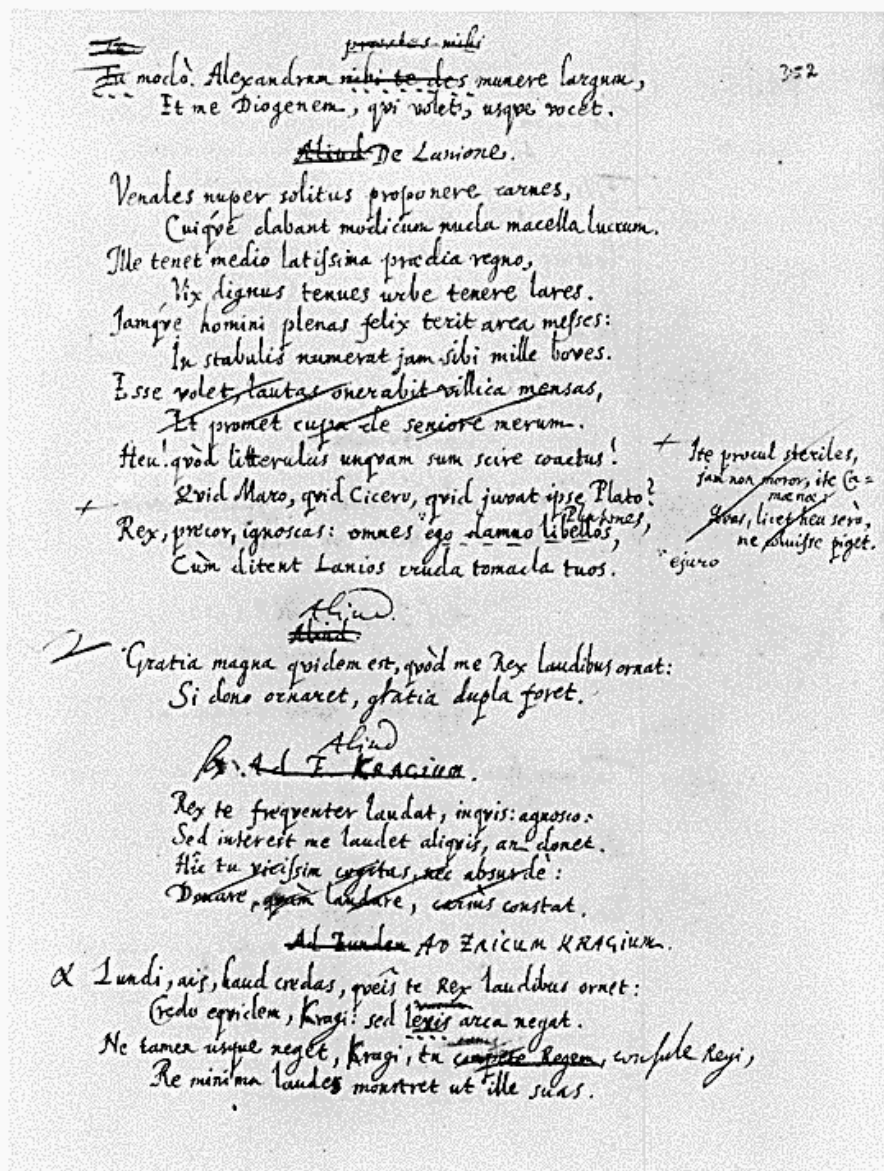 præstes mihi
Tu modò. Alexandrum mihi te des munere largum,
352
Et me Diogenem, qvi volet, usqve vocet.
Aliud De Lanione.
Venales nuper solitus proponere carnes,
Cuiqve dabant modicum nuda macella lucrum.
Ille tenet medio latissima prædia regno,
Vix dignus tenues urbe tenere lares.
Jamqve homini plenas felix terit area messes:
In stabulis numerat jam sibi mille boves.
Esse volet, lautas onerabit villica mensas,
Et promet cupa de seniore merum.
Heu! qvòd litterulas unqvam sum scire coactus!
Qvid Maro, qvid Cicero, qvid juvat ipse Plato?
Platones,
Rex, precor, ignoscas: omnes ego damno libellos,
Cùm ditent Lanios cruda tomacla tuos.
+ Ite procul steriles,
jam non moror, ite Ca=
mænæ
Qvas, licet heu serò,
me coluisse piget.
ejuro
Aliud.
Aliud.
Gratia magna qvidem est, qvòd me Rex laudibus ornat:
Si dono ornaret, gratia dupla foret.
Aliud
Ad T. KRAGIUM.
Rex te freqventer laudat, inqvis: agnosco:
Sed interest me laudet aliqvis, an donet.
Hîc tu vicissim cogitas, nec absurdè:
Donare, qvàm laudare, cariùs constat.
Ad Lunden AD ERICUM KRAGIUM.
α Lundi, ais, haud credas, qveîs te Rex laudibus ornet:
Credo eqvidem, Kragi: sed levis arca negat.
Ne tamen usqve neget, Kragi, tu Regem, consule Regi,
Re minima laudes monstret ut ille suas.